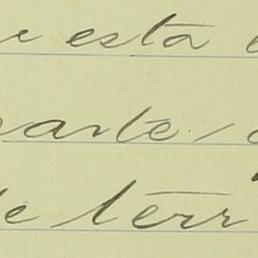 e esta
parte,
de terr